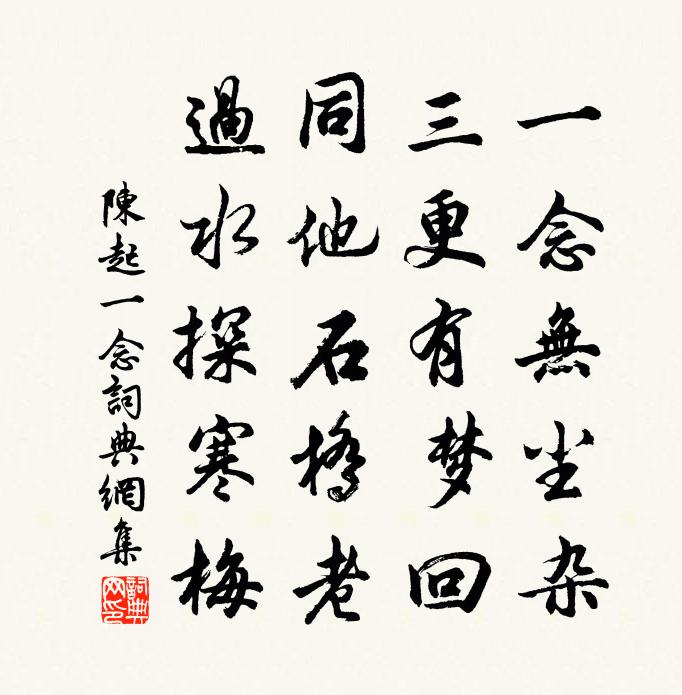 一念無尘杂
三更有梦回
同他石橋老
過水探寒梅
陳起一念詞典網集
詞典網印